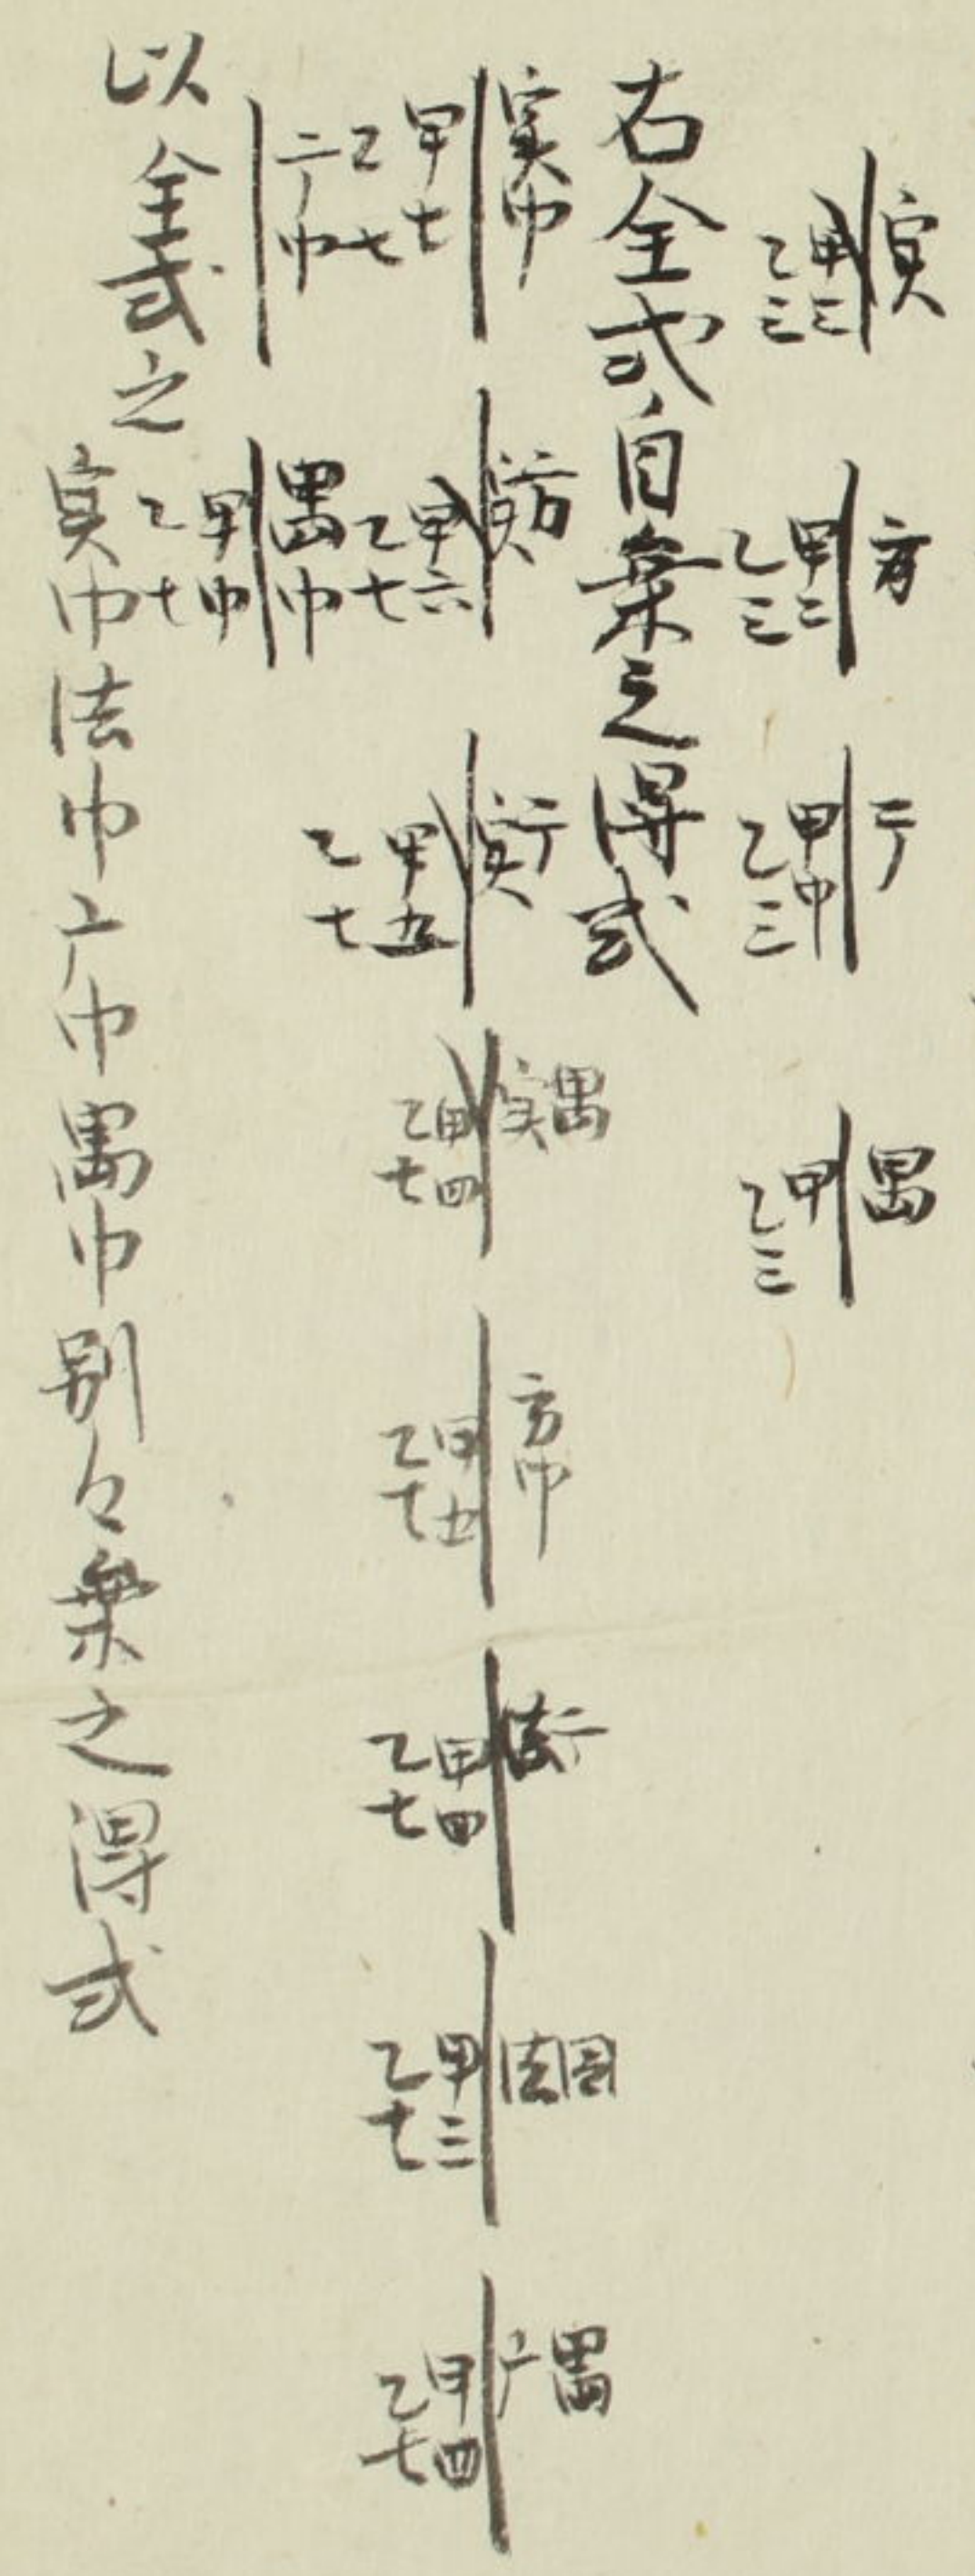 実 甲三 乙三
方 甲二 乙三
甲巾 乙三
禺 甲 乙三
右全式自乗之得式
実巾 甲七 乙七
方実 甲六 乙七
実 甲五 乙七
禺実 甲四 乙七
方巾 甲五 乙七
法 甲四 乙七
法 甲三 乙七
禺 甲四 乙七
巾
禺巾 甲巾 乙七
以全式之
実巾法巾广巾禺巾別々乗之得式